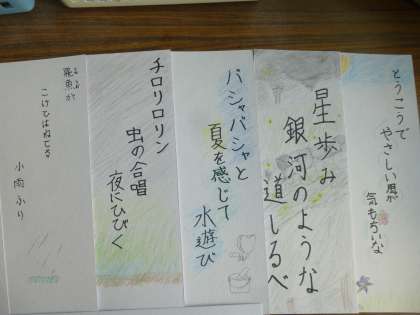 とうこうで
やさしい風
気もちいな
星歩み
銀河のような
道しるべ
バシャバシャと
夏を感じて
水遊び
チロリロリン
虫の合唱
夜にひびく
小雨ふり